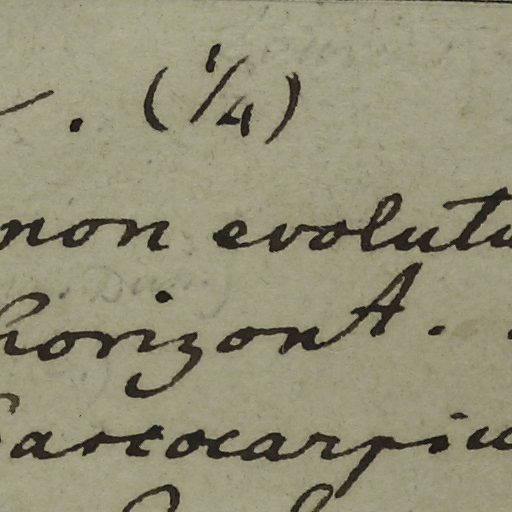 . (1/4)
non evolutu
horizont A.
Sarcocarpiu